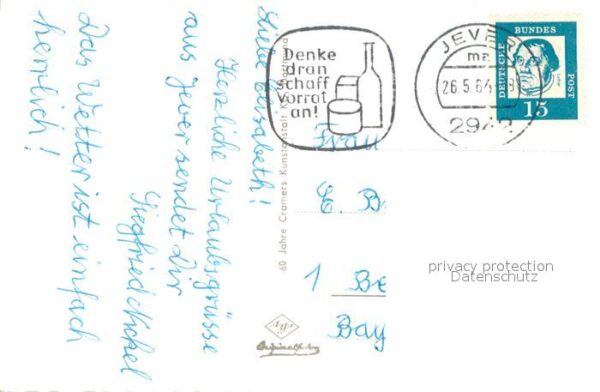 Liebe Elisabeth!
Herzliche Urlaubsgrüsse
aus Jever sendet Dir
Siegfried
Das Wetter ist einfach
herrlich!
60 Jahre Cramers Kunstanstalt KG Dortmund
Denke
dran
schaff
Vorrat
an!
JEVER
26.5.64
2942
DEUTSCHE
BUNDES
POST
15
Frau
E. B
1 Be
Bay
privacy protection
Datenschutz